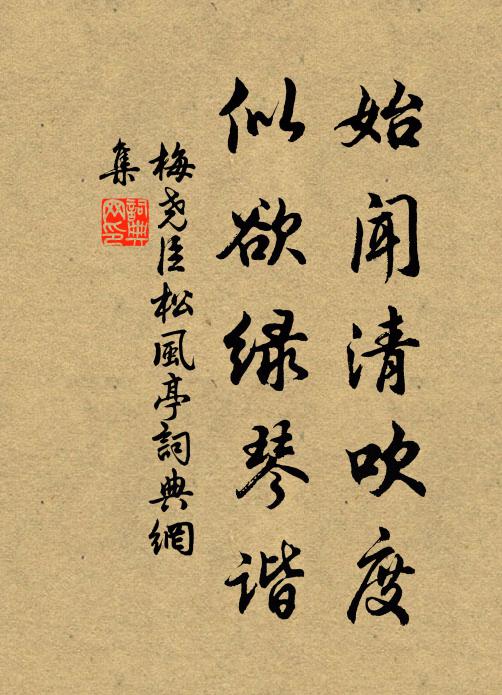 始闻清吹度
似欲绿琴谐
梅尧臣松風亭詞典網
集
詞典網印